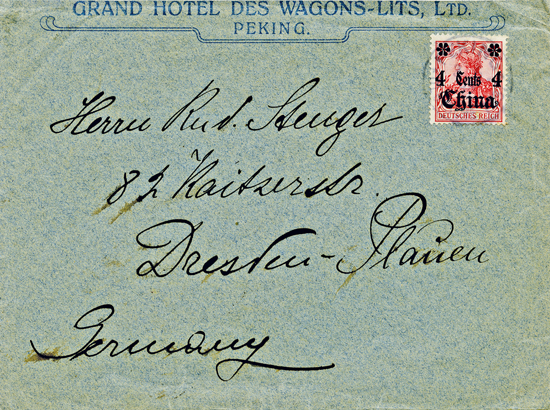 GRAND HOTEL DES WAGONS-LITS, LTD.
PEKING.
4 Cents 4
China
DEUTSCHES REICH
Herrn Rud. Stenger
82 Kaitzerstr.
Dresden-Plauen
Germany